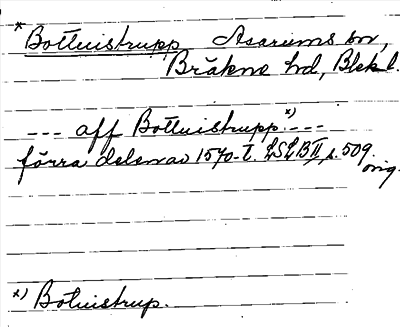 * Botluistrupp Asarums sn,
Bräkne hd, Blek l.
--- aff Botluistrupp.x) ---
förra delen av 1570-t. LSLB II, s. 509.
orig.
x) Botuistrup.